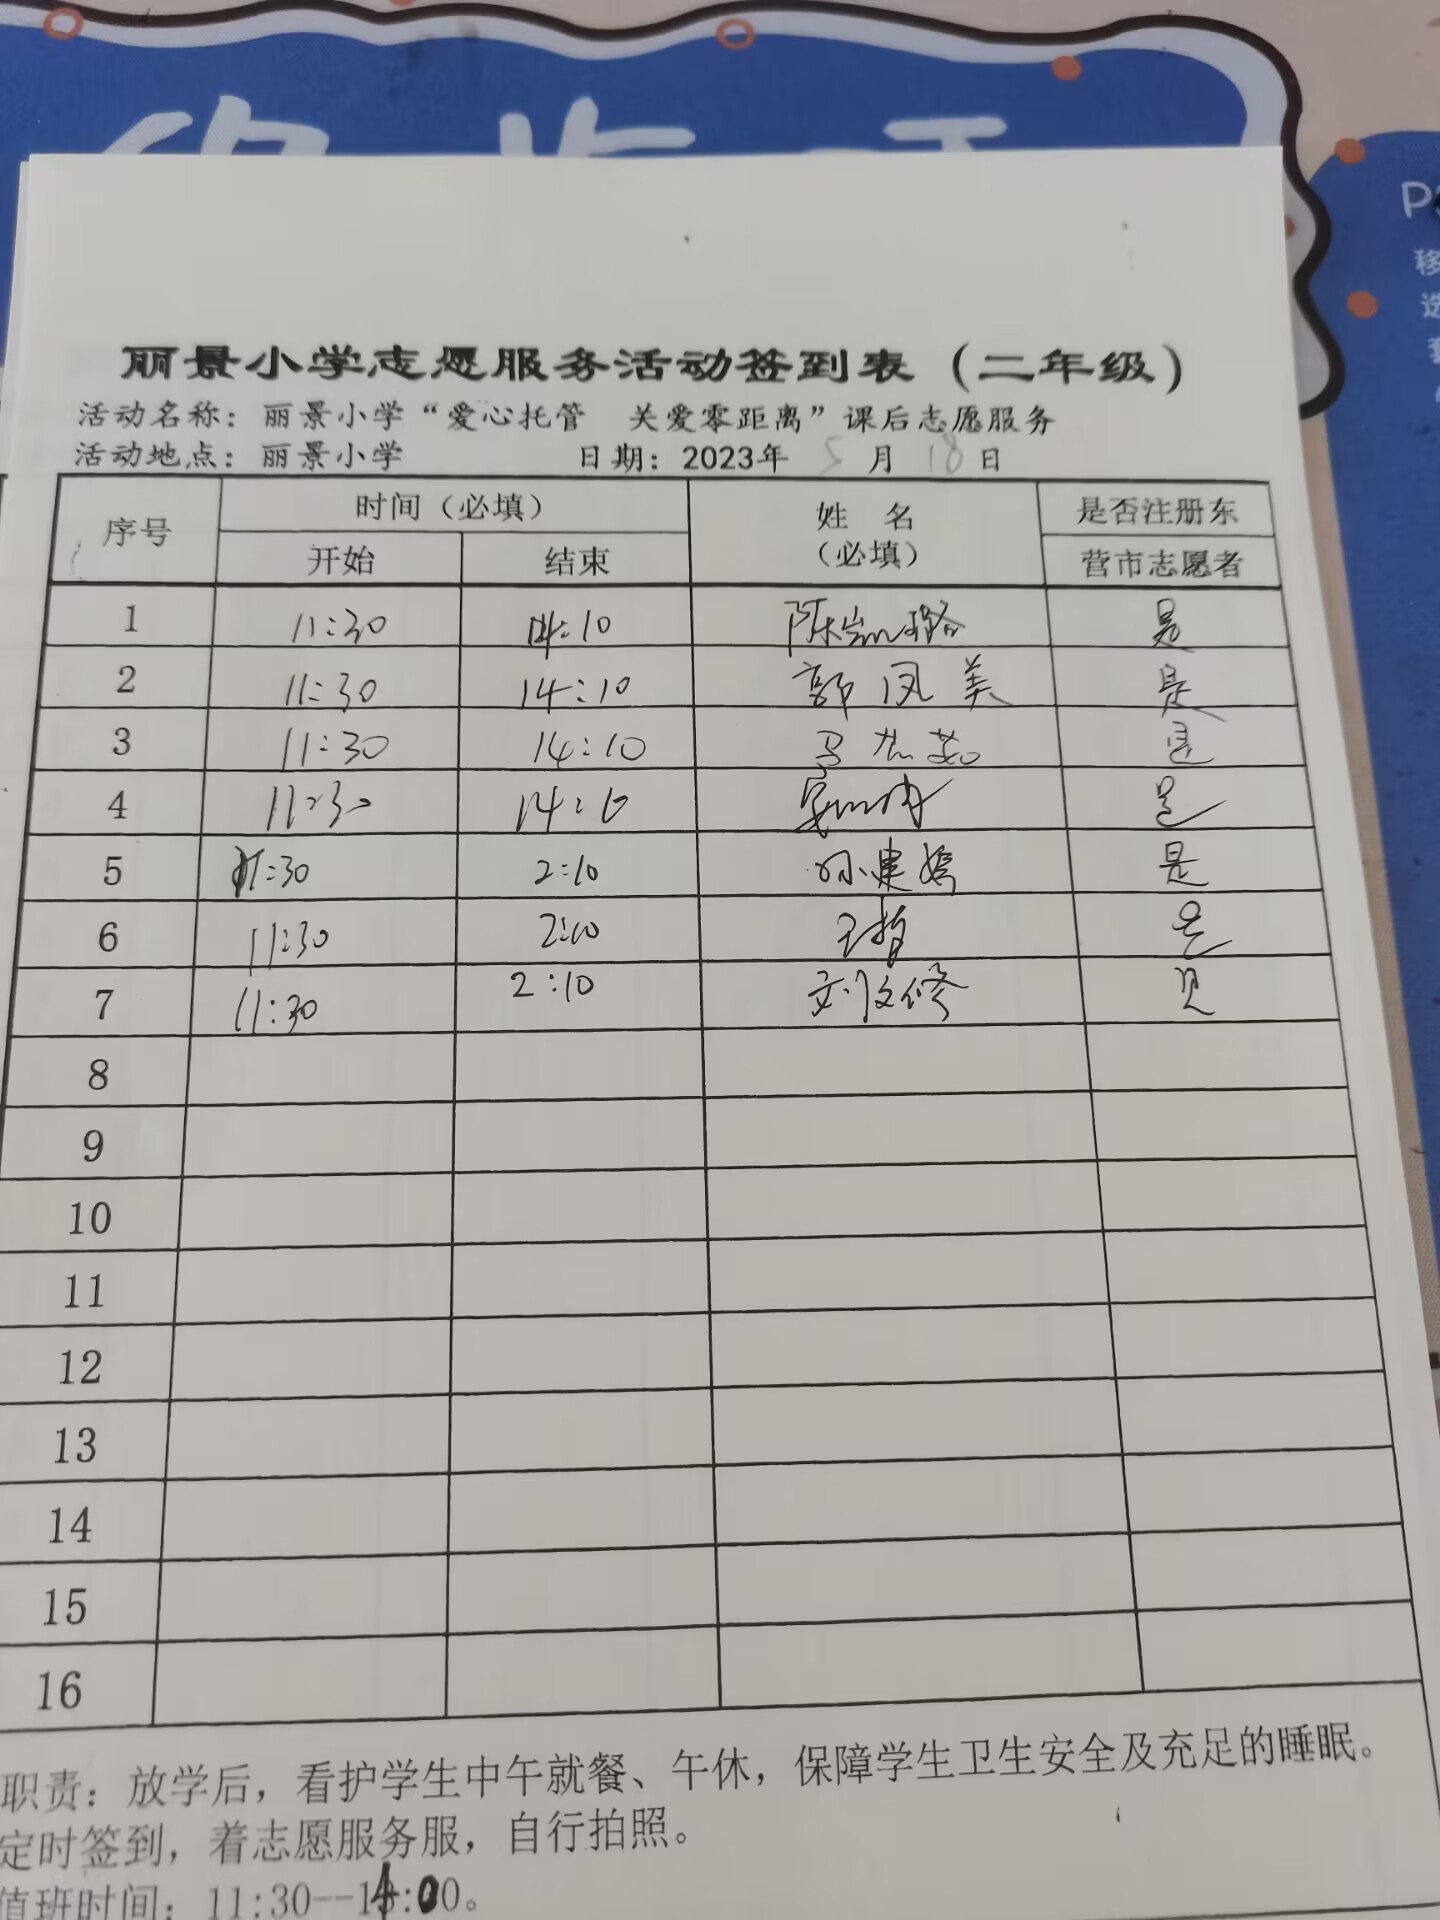 丽景小学志愿服务活动签到表（二年级）
活动名称：丽景小学“爱心托管 关爱零距离”课后志愿服务
活动地点：丽景小学 日期：2023年 5 月 18 日
序号 时间（必填） 姓 名 是否注册东
开始 结束 （必填） 营市志愿者
1 11:30 14:10 陈 是
2 11:30 14:10 郭凤美 是
3 11:30 14:10 马 是
4 11:30 14:10 是
5 11:30 2:10 孙建嫦 是
6 11:30 2:10 王 是
7 11:30 2:10 刘 是
8
9
10
11
12
13
14
15
16
职责：放学后，看护学生中午就餐、午休，保障学生卫生安全及充足的睡眠。
定时签到，着志愿服务服，自行拍照。
值班时间：11:30--14:00。